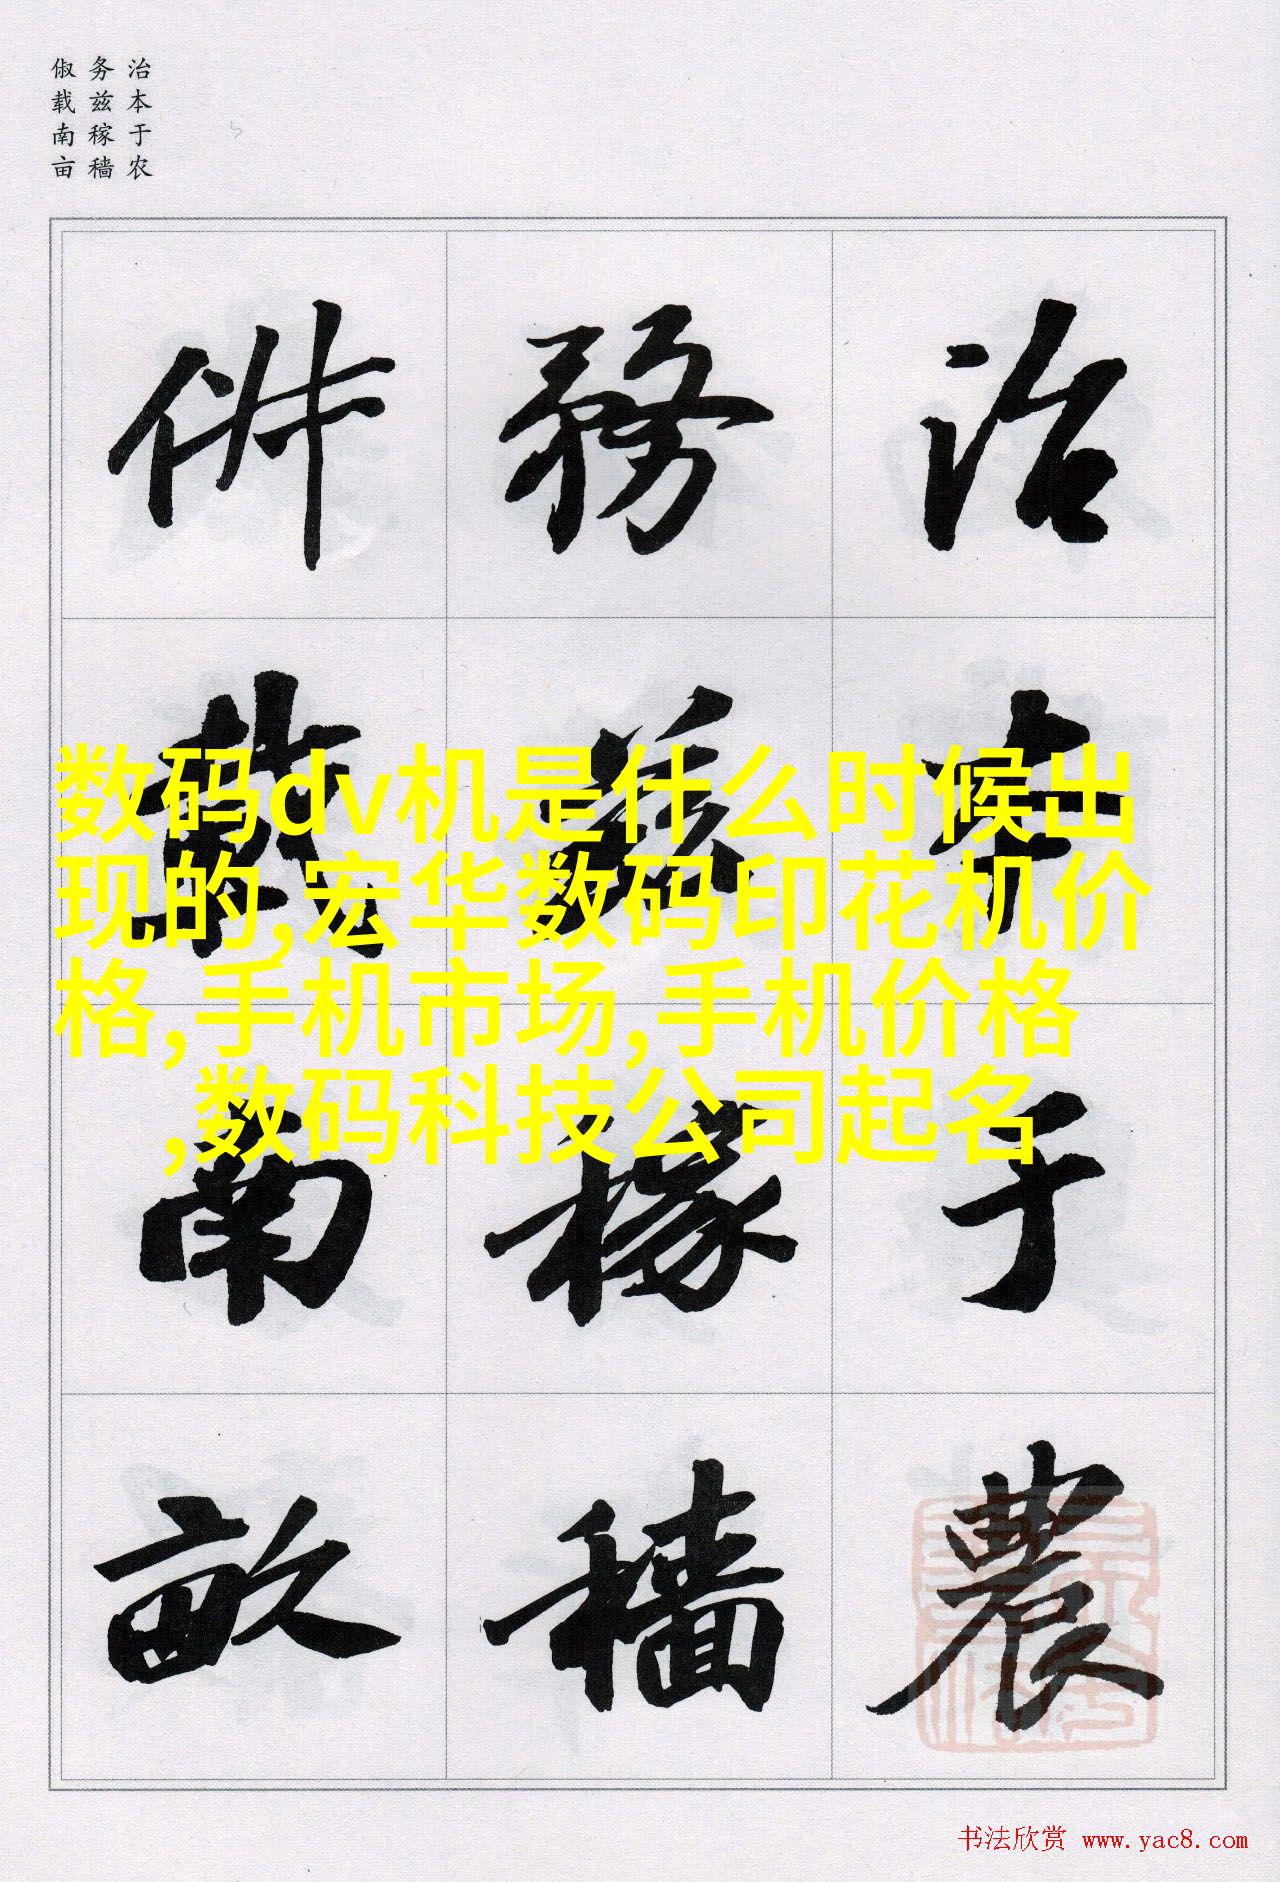 治本于农
务兹稼穑
俶载南亩
治本于農
務茲稼穡
俶載南畝
数码dv机是什么时候出
现的,宏华数码印花机价
格,手机市场,手机价格
,数码科技公司起名
书法欣赏 www.yac8.com